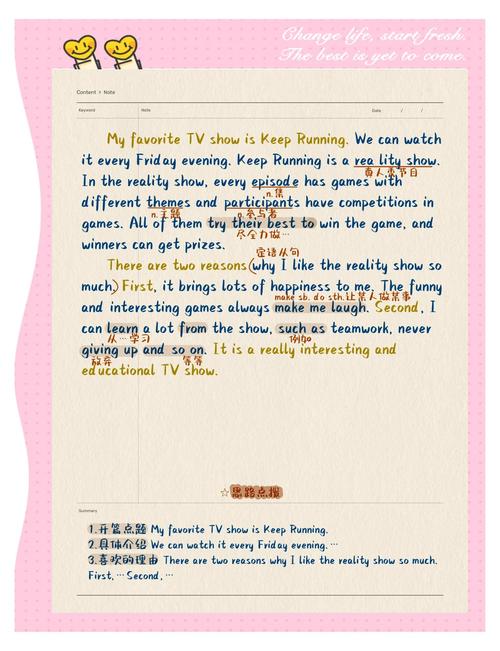 Change life, start fresh.
The best is yet to come.
Content > Note
Keyword Note Date / /
My favorite TV show is Keep Running. We can watch
it every Friday evening. Keep Running is a rea lity show.
真人秀节目
In the reality show, every episode has games with
n.集
different themes and participants have competitions in
n.主题 n.参与者
games. All of them try their best to win the game, and
尽全力做…
winners can get prizes.
定语从句
There are two reasons(why I like the reality show so
much.) First, it brings lots of happiness to me. The funny
make sb. do sth.让某人做某事
and interesting games always make me laugh. Second, I
can learn a lot from the show, such as teamwork, never
从…学习 例如
giving up and so on. It is a really interesting and
放弃 等等
educational TV show.
☆思路点拨
Summary
1.开篇点题 My favorite TV show is Keep Running.
2.具体介绍 We can watch it every Friday evening. …
3.喜欢的理由 There are two reasons why I like the reality show so much.
First, … Second, …